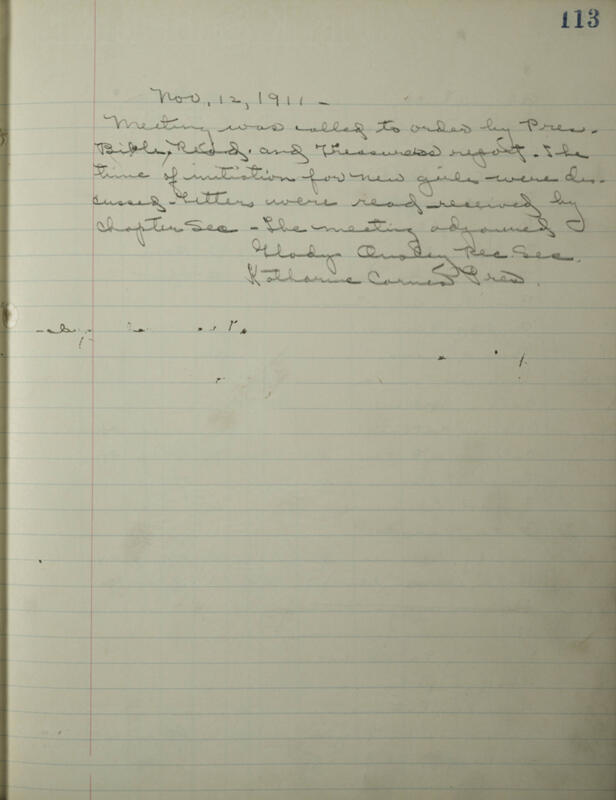 113
Nov. 12, 1911 -
Meeting was called to order by Pres.
Bible, Read, and Treasurers report. The
time of initiation for new girls were dis-
cussed - Letters were read received by
Chapter Sec - The meeting adjourned
Gladys Rec. Sec.
Katharine Pres.